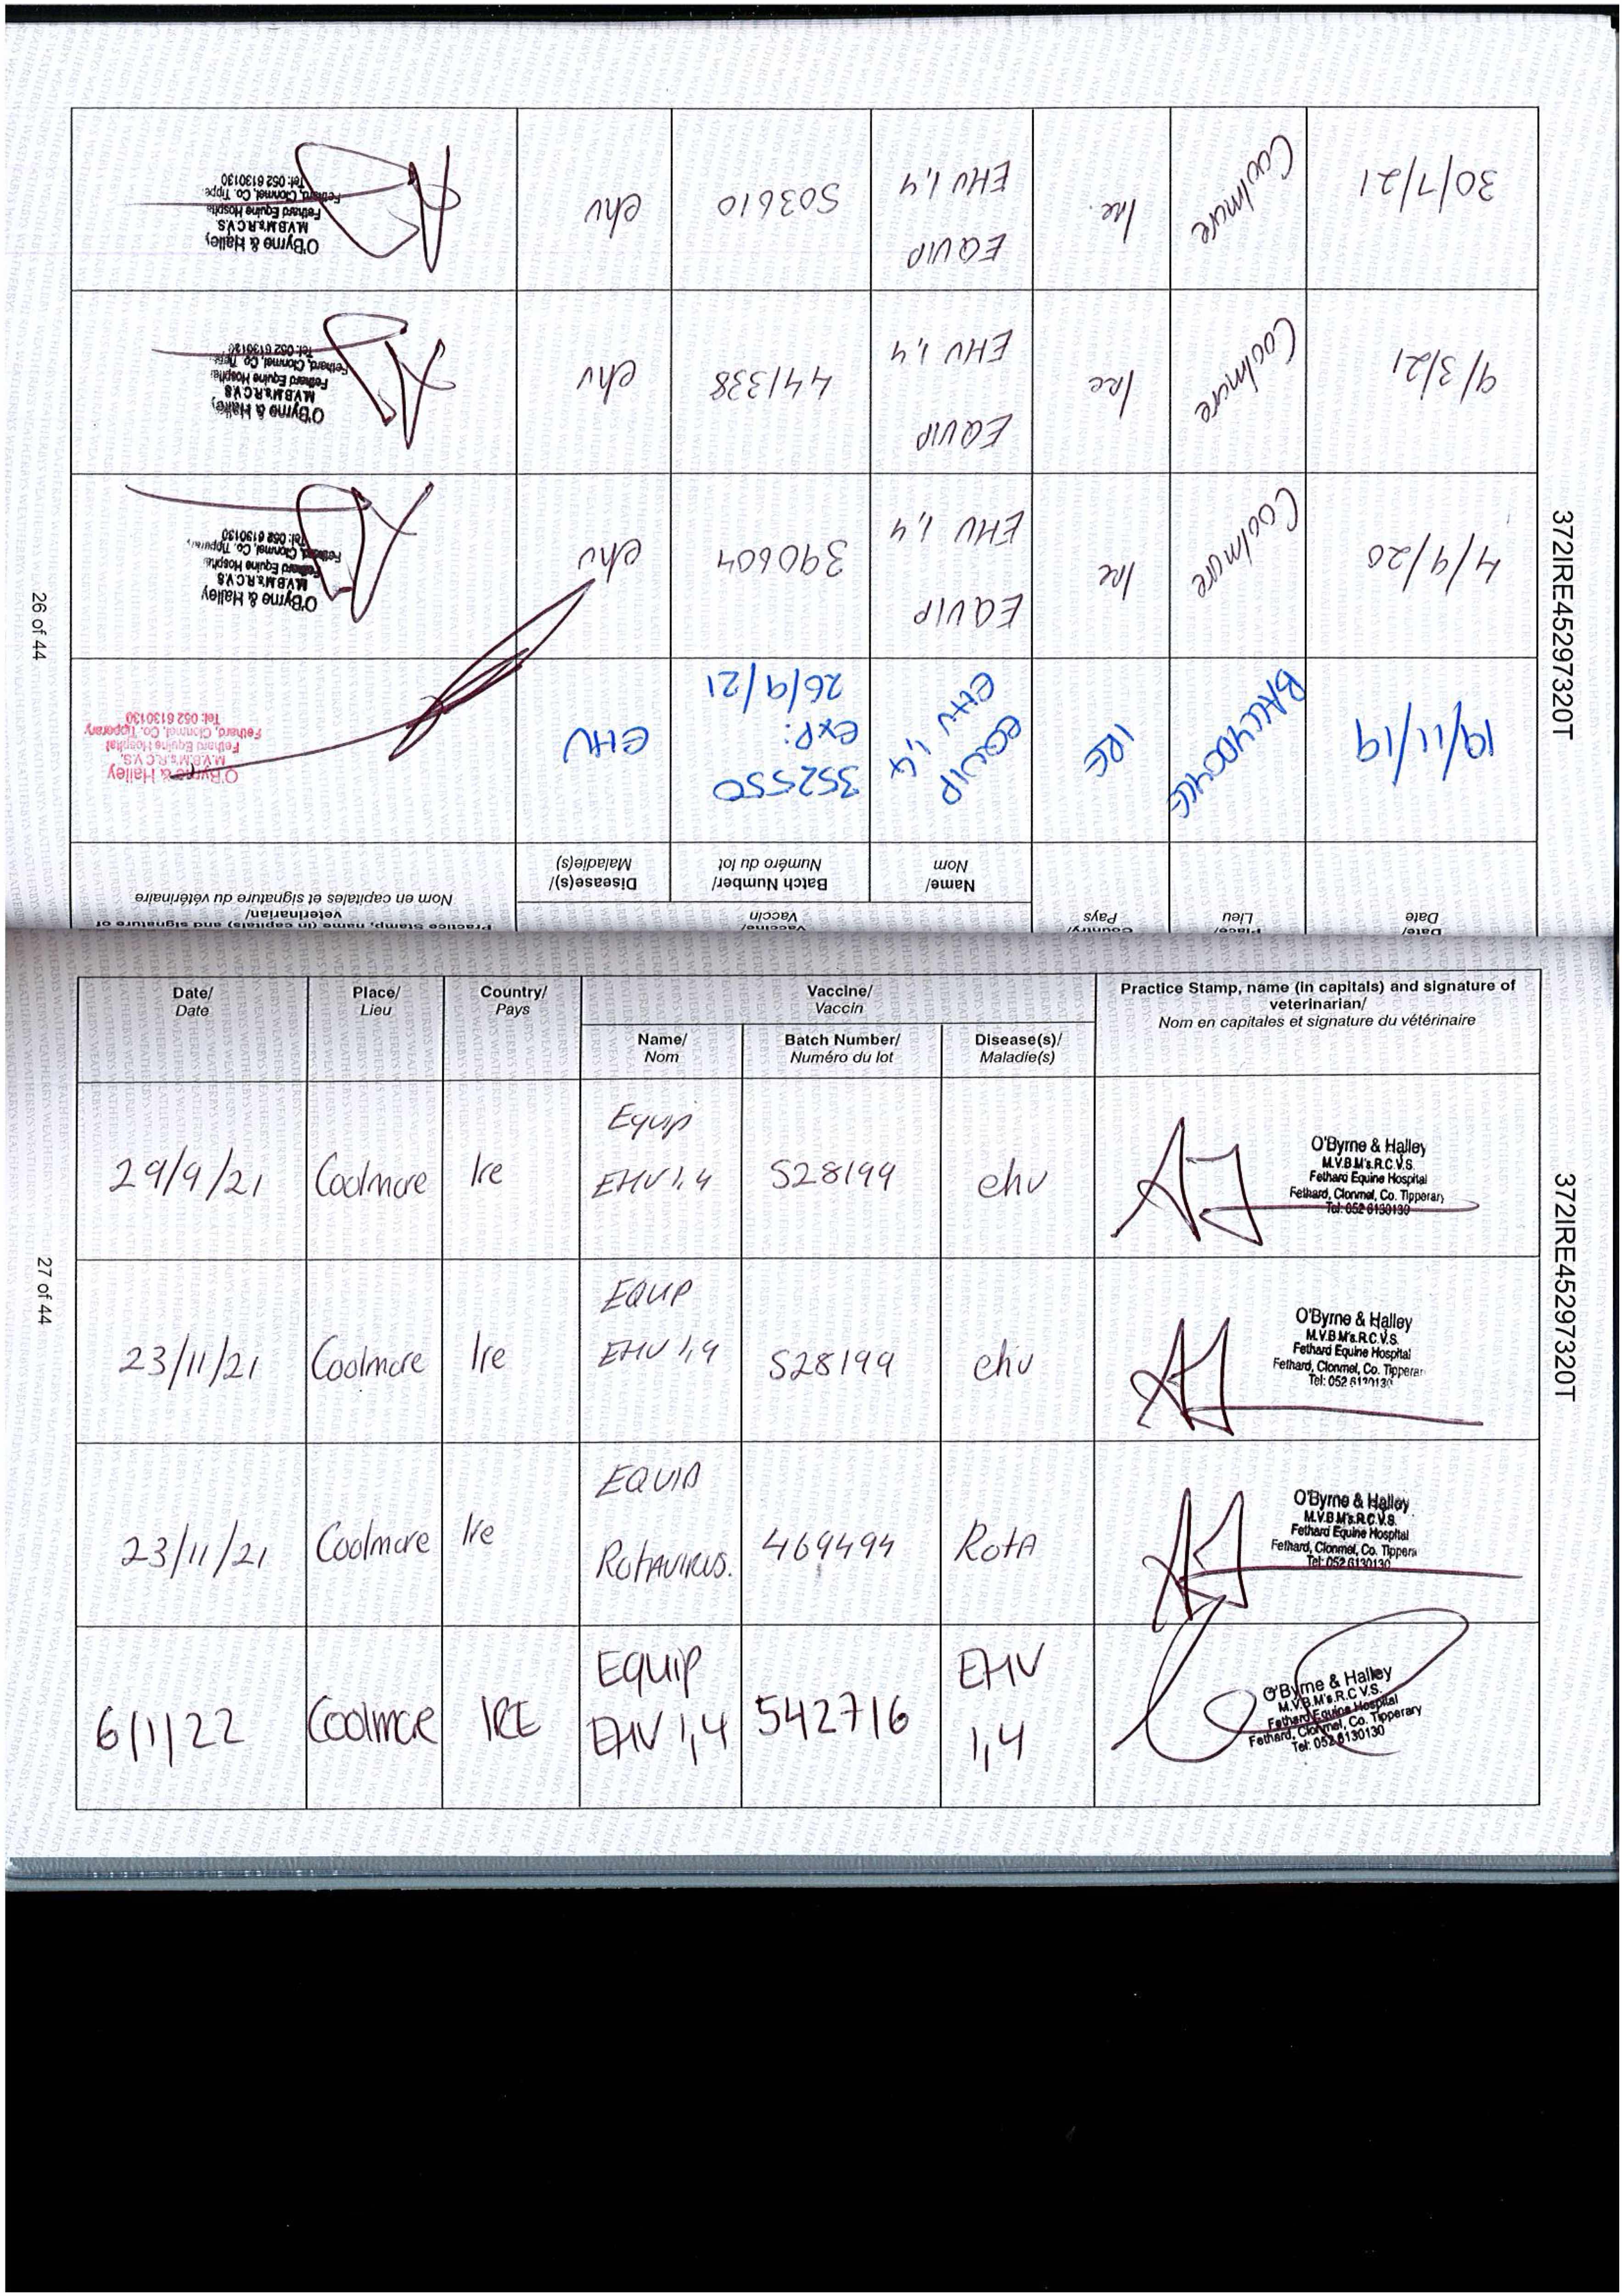 372IRE45297320T
26 of 44
Date/ Place/ Country/ Vaccine/ Practice Stamp, name (in capitals) and signature of
Date Lieu Pays Vaccin veterinarian/
Name/ Batch Number/ Disease(s)/ Nom en capitales et signature du vétérinaire
Nom Numéro du lot Maladie(s)
19/11/19 BALLYDOYLE IRE EQUIP EHV 1,4 352550 EHV
exp:
26/9/21
O'Byrne & Halley
M.V.B.M's.R.C.V.S.
Fethard Equine Hospital
Fethard, Clonmel, Co. Tipperary
Tel: 052 6130130
4/9/20 Coolmore Ire EQUIP
EHV 1,4 390604 ehv
O'Byrne & Halley
M.V.B.M's.R.C.V.S
Fethard Equine Hospital
Fethard, Clonmel, Co. Tipperary
Tel: 052 6130130
9/3/21 Coolmore Ire EQUIP
EHV 1,4 441338 ehv
O'Byrne & Halley
M.V.B.M's.R.C.V.S
Fethard Equine Hospital
Fethard, Clonmel, Co. Tippe
Tel: 052 6130130
30/7/21 Coolmore Ire. EQUIP
EHV 1,4 503610 ehv
O'Byrne & Halley
M.V.B.M's.R.C.V.S.
Fethard Equine Hospita
Fethard, Clonmel, Co. Tippe
Tel: 052 6130130
372IRE45297320T
27 of 44
Date/ Place/ Country/ Vaccine/ Practice Stamp, name (in capitals) and signature of
Date Lieu Pays Vaccin veterinarian/
Name/ Batch Number/ Disease(s)/ Nom en capitales et signature du vétérinaire
Nom Numéro du lot Maladie(s)
29/9/21 Coolmore Ire Equip
EHV 1,4 528199 ehv
O'Byrne & Halley
M.V.B.M's.R.C.V.S.
Fethard Equine Hospital
Fethard, Clonmel, Co. Tipperary
Tel: 052 6130130
23/11/21 Coolmore Ire EQUIP
EHV 1,4 528199 ehv
O'Byrne & Halley
M.V.B.M's.R.C.V.S.
Fethard Equine Hospital
Fethard, Clonmel, Co. Tipperar
Tel: 052 6130130
23/11/21 Coolmore Ire EQUIP
ROTAVIRUS. 469494 RotA
O'Byrne & Halley
M.V.B.M's.R.C.V.S.
Fethard Equine Hospital
Fethard, Clonmel, Co. Tippera
Tel: 052 6130130
6/1/22 Coolmore IRE Equip
EHV 1,4 542716 EHV
1,4
O'Byrne & Halley
M.V.B.M's.R.C.V.S.
Fethard Equine Hospital
Fethard, Clonmel, Co. Tipperary
Tel: 052 6130130